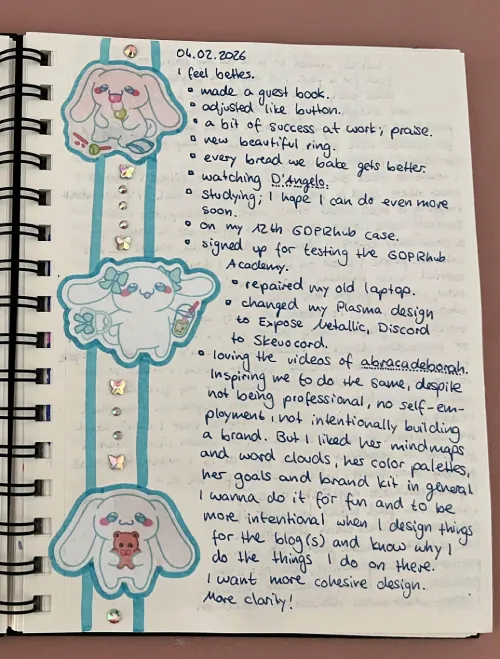 04.02.2026
I feel better.
• made a guest book.
• adjusted like button.
• a bit of success at work; praise.
• new beautiful ring.
• every bread we bake gets better.
• watching D'Angelo.
• studying; I hope I can do even more
soon.
• on my 12th GDPRhub case.
• signed up for testing the GDPRhub
Academy.
• repaired my old laptop.
• changed my Plasma design
to Expose Metallic, Discord
to Skeuocord.
• loving the videos of abracadeborah.
Inspiring me to do the same, despite
not being professional, no self-em-
ployment, not intentionally building
a brand. But I liked her mindmaps
and word clouds, her color palettes,
her goals and brand kit in general.
I wanna do it for fun and to be
more intentional when I design things
for the blog(s) and know why I
do the things I do on there.
I want more cohesive design.
More clarity!